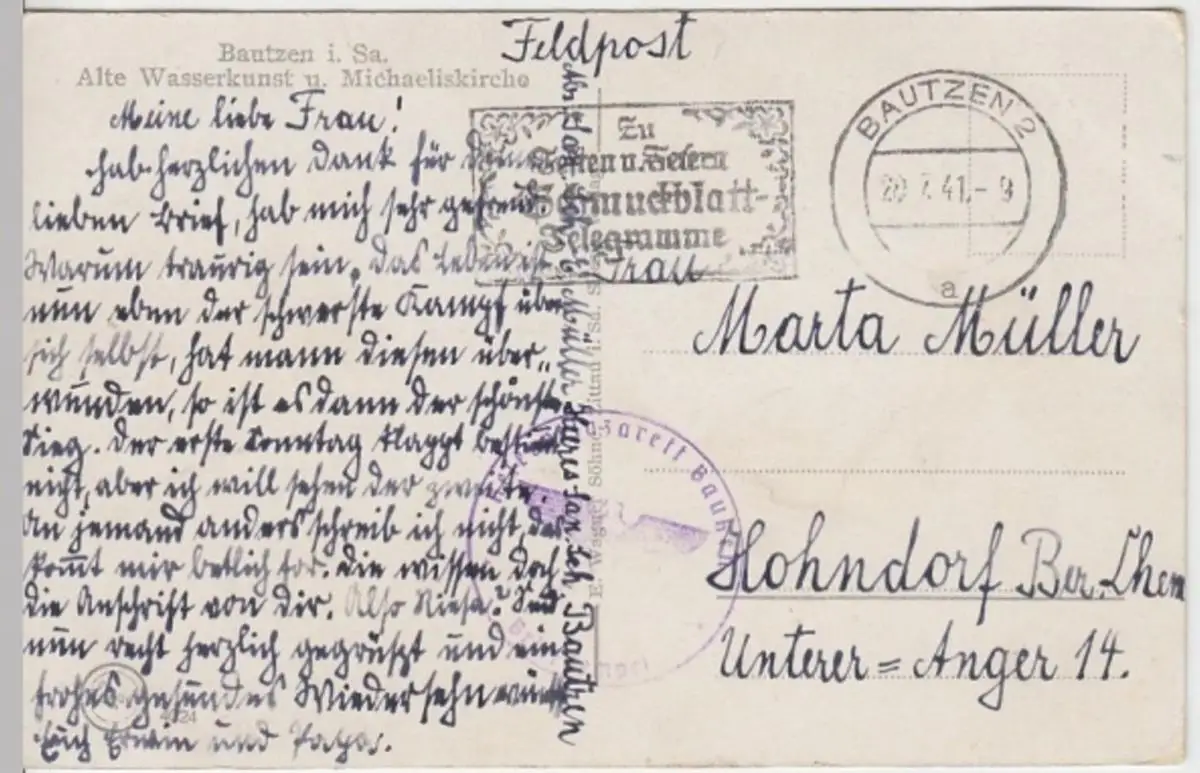 Bautzen i. Sa.
Alte Wasserkunst u. Michaeliskirche
Feldpost
Meine liebe Frau!
hab herzlichen Dank für
lieben Brief, hab mich sehr gefreut
Warum traurig sein, das Leben ist
nun eben der schwerste Kampf über
sich selbst, hat mann diesen über„
wunden, so ist es dann der schönste
Sieg. Der erste Sonntag klappt bestimmt
nicht, aber ich will sehen der zweite.
An jemand anders schreib ich nicht, das
kommt mir vor. Die wissen doch
die Anschrift von dir. Also
nun recht herzlich gegrüszt und ein
frohes gesundes Wiedersehn wünscht
Erwin und Papa.
Müller Bautzen
Zu
Festen u. Feiern
Schmuckblatt-
Telegramme
BAUTZEN 2
20.7.41.- 9
a
Frau
Marta Müller
Hohndorf Bez. Chem
Unterer = Anger 14.
Reservelazarett Bautzen
E. Wagner Söhne, Zittau i. Sa.